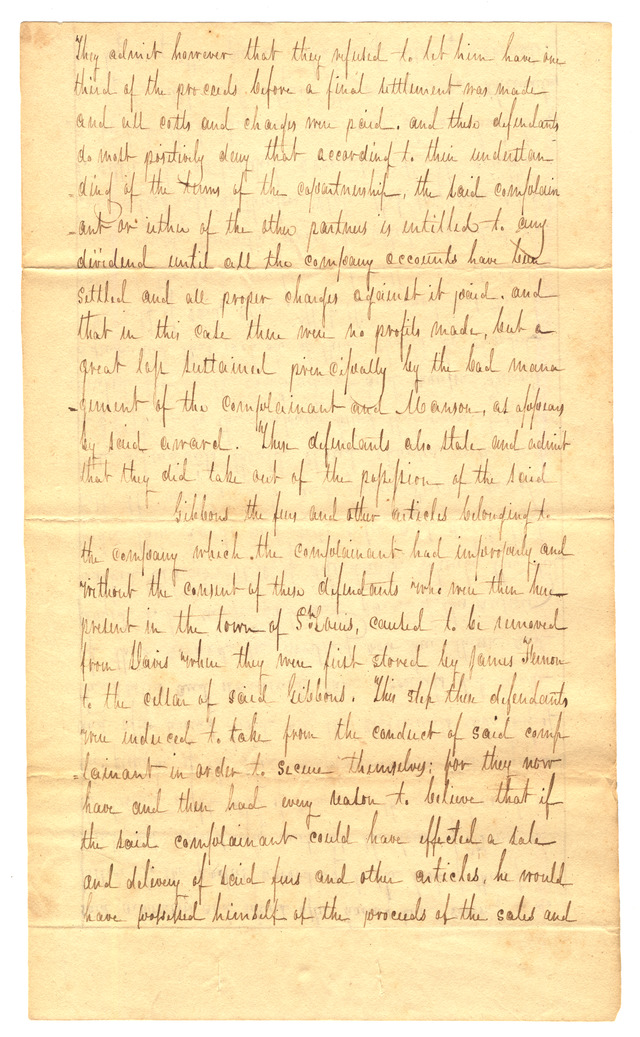 They admit however that they refused to let him have one
third of the proceeds before a final settlement was made
and all costs and charges were paid. and these defendants
do most positively deny that according to their understan
=ding of the terms of the copartnership, the said complain
=ant or either of the other partners is entitled to any
dividend until all the company accounts have been
settled and all proper charges against it paid. and
that in this case there were no profits made, but a
great loss sustained principally by the bad mana
=gement of the complainant and Manson, as appears
by said award. These defendants also state and admit
that they did take out of the possession of the said
Gibbons the furs and other articles belonging to
the company which the complainant had improperly and
without the consent of these defendants who were then here
present in the town of St Louis, caused to be removed
from Davis where they were first stored by James
to the cellar of said Gibbons. This step these defendants
were induced to take from the conduct of said comp
=lainant in order to secure themselves; for they now
have and then had every reason to believe that if
the said complainant could have effected a sale
and delivery of said furs and other articles, he would
have possessed himself of the proceeds of the sales and